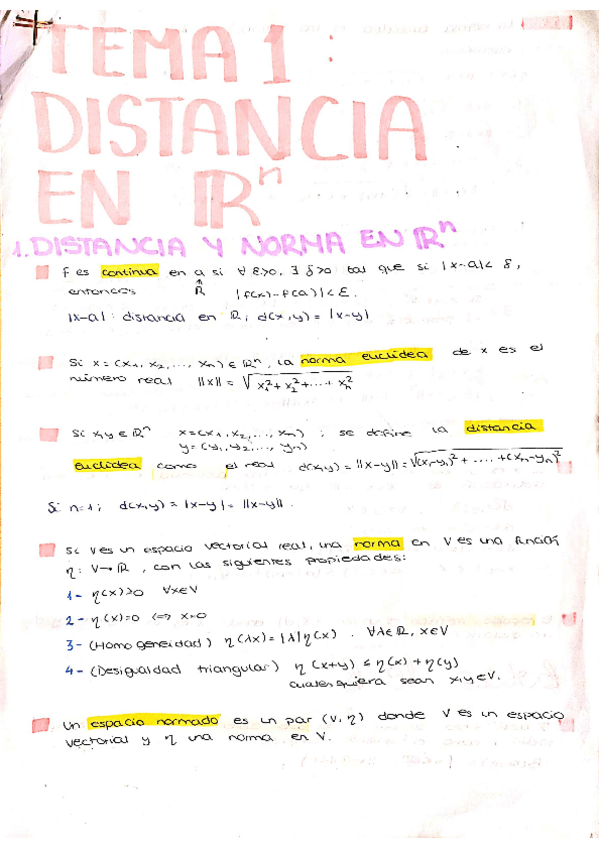 TEMA 1 :
DISTANCIA
EN ℝⁿ
1. DISTANCIA Y NORMA EN ℝⁿ
f es continua en a si ∀ ε>0, ∃ δ>0 tal que si |x-a|< δ,
entonces ℝ |f(x)-f(a)|<ε.
|x-a| : distancia en ℝ; d(x,y) = |x-y|
Si x = (x₁, x₂, ..., xₙ) ∈ ℝⁿ, la norma euclídea de x es el
número real ||x|| = √(x₁²+x₂²+...+xₙ²)
Si x,y ∈ ℝⁿ x=(x₁, x₂, ..., xₙ) ; se define la distancia
y=(y₁, y₂, ..., yₙ)
euclídea como el real d(x,y) = ||x-y|| = √((x₁-y₁)² + ..... +(xₙ-yₙ)²)
Si n=1; d(x,y) = |x-y| = ||x-y||.
Si V es un espacio vectorial real, una norma en V es una función
η: V→ℝ, con las siguientes propiedades:
1- η(x)≥0 ∀x∈V
2- η(x)=0 <=> x=0
3- (Homogeneidad) η(λx) = |λ|η(x). ∀λ∈ℝ, x∈V
4- (Desigualdad triangular) η(x+y) ≤ η(x)+η(y)
cualesquiera sean x,y∈V.
Un espacio normado es un par (V,η) donde V es un espacio
vectorial y η una norma en V.